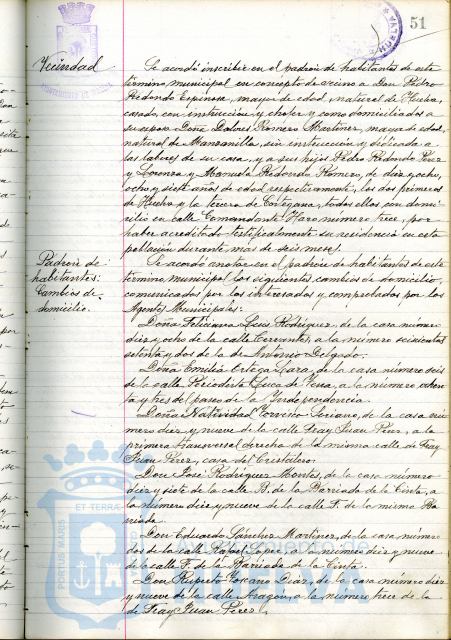 51
Vecindad
Se acordó inscribir en el padrón de habitantes de este
término municipal en concepto de vecino a Don Pedro
Redondo Espinosa, mayor de edad, natural de Huelva,
casado, con instrucción y chofer y como domiciliados a
su esposa Doña Dolores Romero Martínez, mayor de edad,
natural de Manzanilla, sin instrucción y dedicada a
las labores de su casa, y a sus hijos Pedro Redondo Pérez
y Lorenza y Manuela Redondo Romero, de diez y ocho,
ocho y siete años de edad respectivamente, los dos primeros
de Huelva y la tercera de Cartagena, todos ellos con domi-
cilio en calle Comandante Haro número trece, por
haber acreditado testificalmente su residencia en esta
población durante más de seis meses.
Padrón de
habitantes:
Cambios de
domicilio.
Se acordó anotar en el padrón de habitantes de este
término municipal los siguientes cambios de domicilio,
comunicados por los interesados y comprobados por los
Agentes Municipales:
Doña Feliciana Rodríguez, de la casa número
diez y ocho de la calle Cervantes, a la número seiscientos
setenta y dos de la de Antonio Delgado.
Doña Emilia Ortega Lara, de la casa número seis
de la calle Periodista Luca de Tena, a la número ochen-
ta y tres del paseo de la Independencia.
Doña Natividad Soriano, de la casa nú-
mero diez y nueve de la calle Fray Juan Pérez, a la
primera transversal derecha de la misma calle de Fray
Juan Pérez, casa del Cristalero.
Don José Rodríguez Montes, de la casa número
diez y siete de la calle B. de la Barriada de la Cinta, a
la número diez y nueve de la calle F. de la misma Ba-
rriada.
Don Eduardo Sánchez Martínez, de la casa núme-
ro dos de la calle Rafael López, a la número diez y nueve
de la calle F. de la Barriada de la Cinta.
Don Ruperto Díaz, de la casa número diez
y nueve de la calle Aragón, a la número trece de la
de Fray Juan Pérez.
PORTUS MARIS
ET TERRAE
Ayuntamiento de